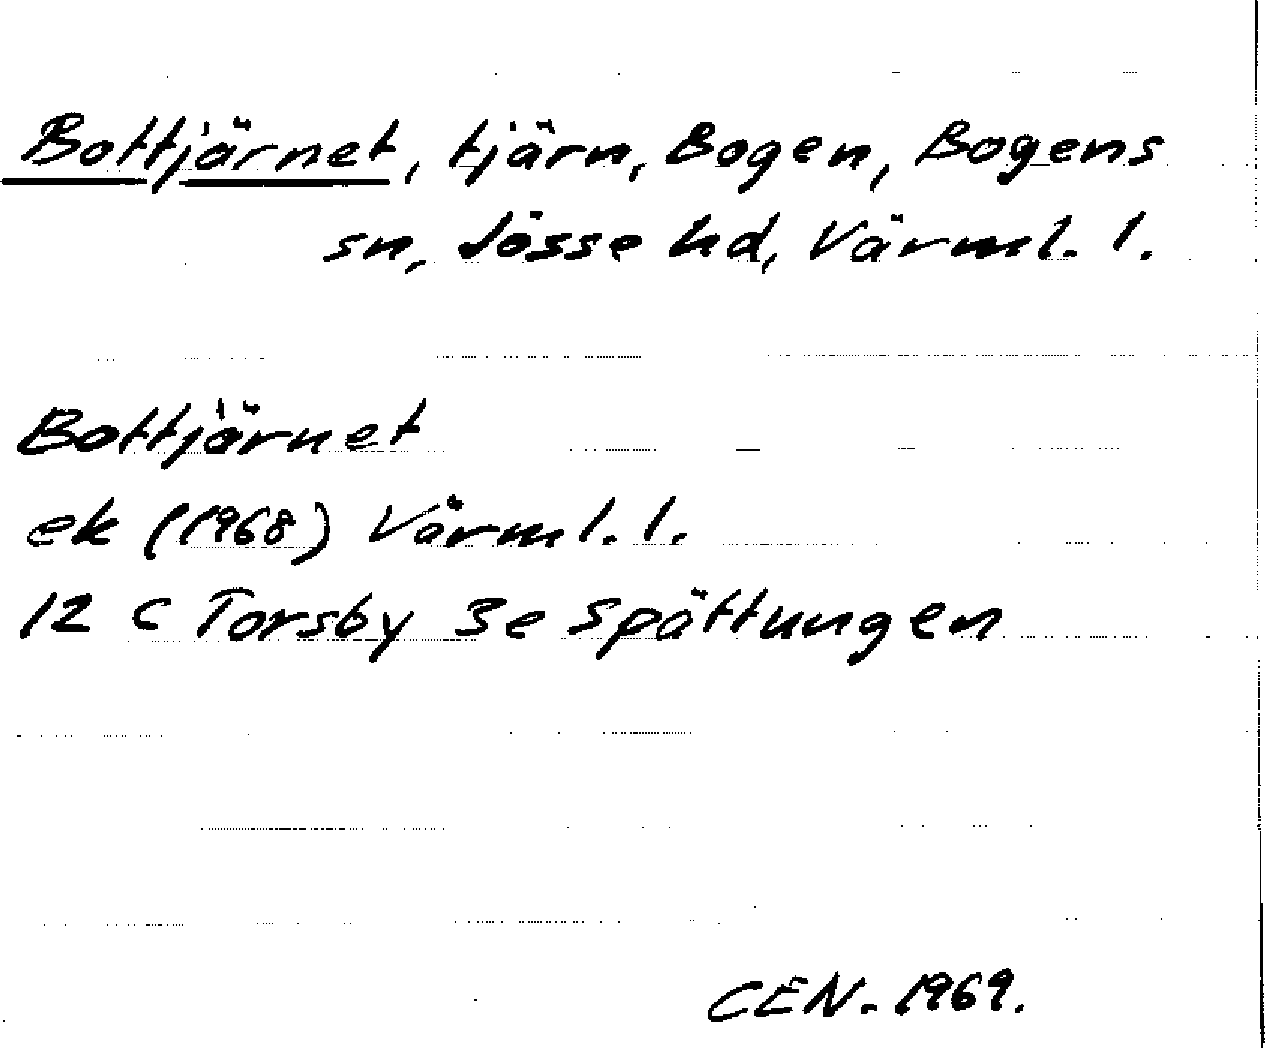 Bottjärnet, tjärn, Bogen, Bogens
sn, Jösse hd, Värml. l.
Bottjärnet
ek (1968) Värml. l.
12 C Torsby 3e Spättungen
CEN. 1969.